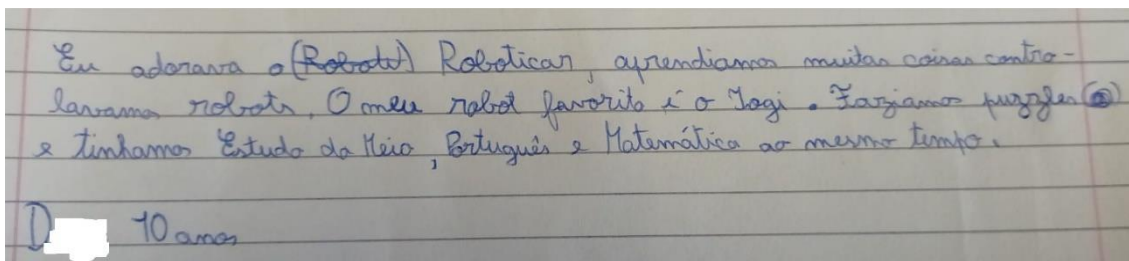 Eu adorava o (Robots) Roboticar, aprendiamos muitas coisas contro-
lavamos robots. O meu robot favorito é o Yogi. Faziamos puzzles
e tinhamos Estudo do Meio, Português e Matemática ao mesmo tempo.
D 10 anos